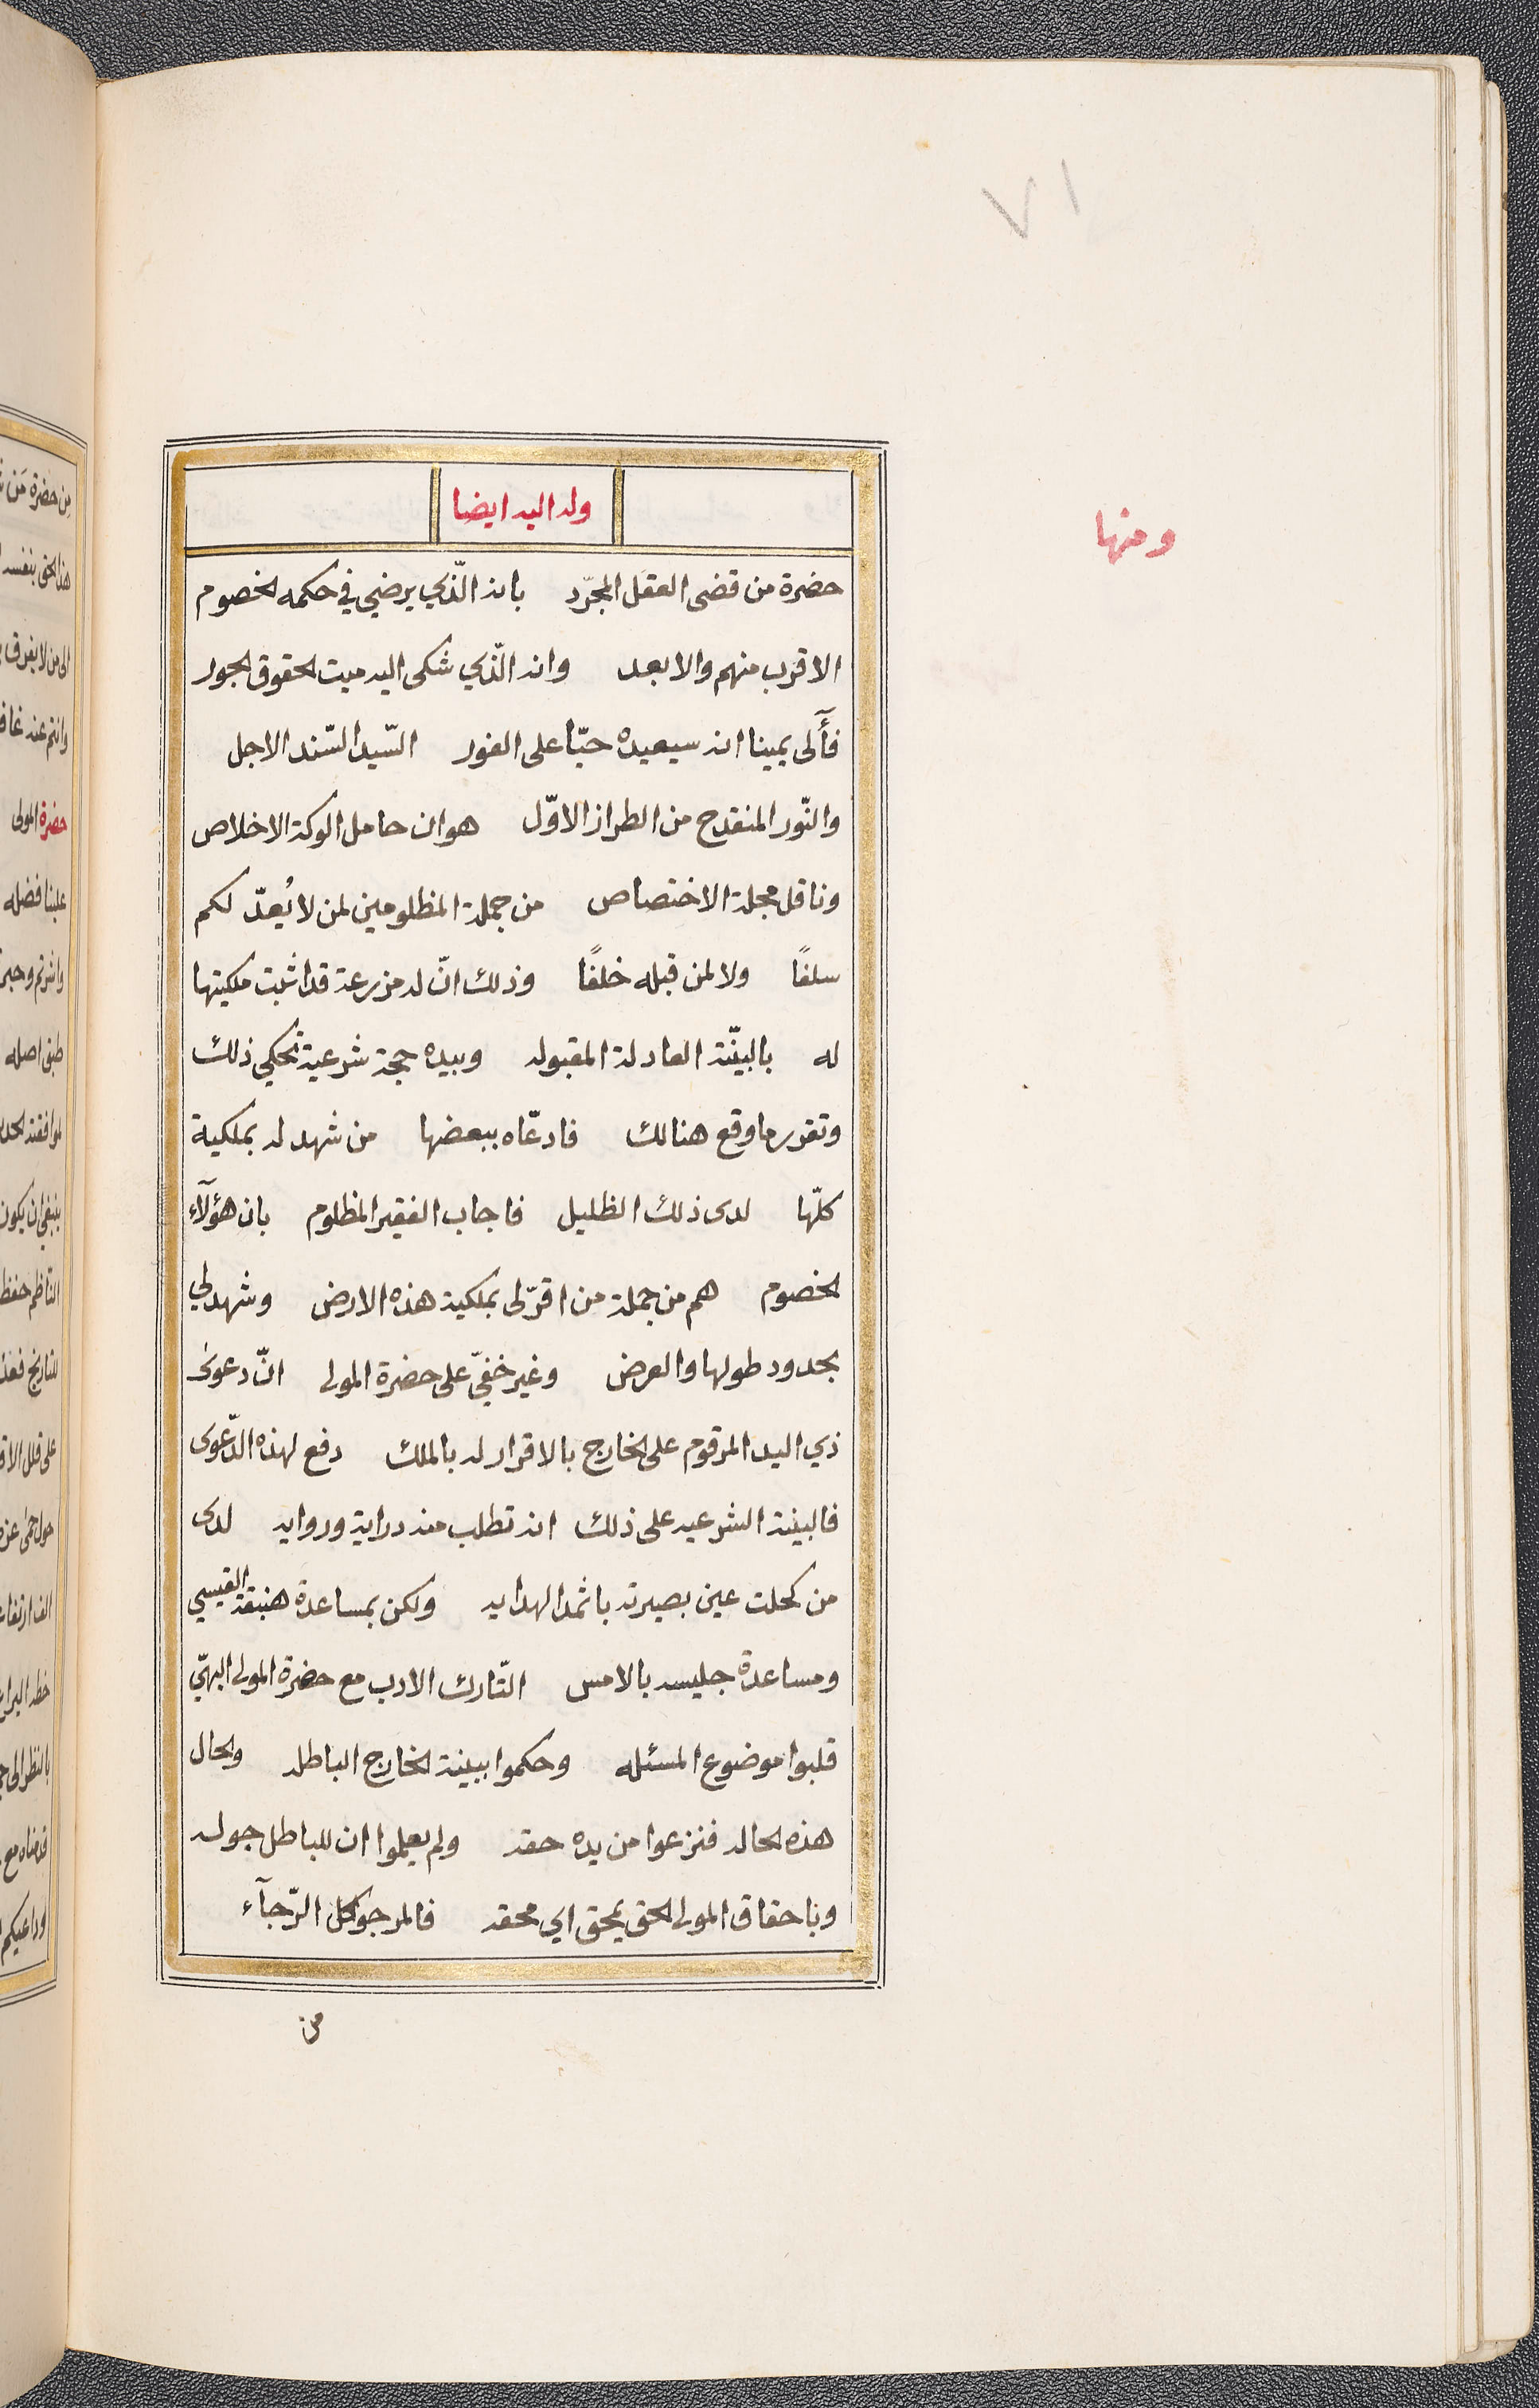 ١٧
ومنها
وله اليه ايضا
حضرة من قضى العقل المجرّد بانه الّذي يرضي في حكمه الخصوم
الاقرب منهم والابعد وانه الّذي شكى اليه ميت الحقوق الجور
فآلى يمينا انه سيعيده حيّا على الفور السّيد السّند الاجل
والنّور المنقدح من الطراز الاوّل هو ان حامل الوكة الاخلاص
وناقل مجلة الاختصاص من جملة المظلومين لمن لا يُعدّ لكم
سلفًا ولا لمن قبله خلفًا وذلك انّ له مزرعة قد اثبت ملكيتها
له بالبيّنة العادلة المقبوله وبيده حجة شرعية تحكي ذلك
وتقرر ما وقع هنالك فادعّاه ببعضها من شهد له بملكية
كلّها لدى ذلك الظليل فاجاب الفقير المظلوم بان هؤلآء
الخصوم هم من جملة من اقرّ لى بملكية هذه الارض وشهد لي
بحدود طولها والعرض وغير خفيّ على حضرة المولى انّ دعوى
ذي اليد المرقوم على الخارج بالاقرار له بالملك دفع لهذه الدّعوى
فالبينة الشرعيه على ذلك انه تطلب منه دراية وروايه لدى
من كحلت عين بصيرته باثمد الهدايه ولكن بمساعدة هنبقة القيسي
ومساعدة جليسه بالامس التّارك الادب مع حضرة المولى البهيّ
قلبوا موضوع المسئله وحكموا ببينة الخارج الباطله والحال
هذه الحاله فنزعوا من يده حقه ولم يعلموا ان للباطل جوله
وباحقاق المولى الحق يمحق اي محقه فالمرجو كل الرّجآء
من